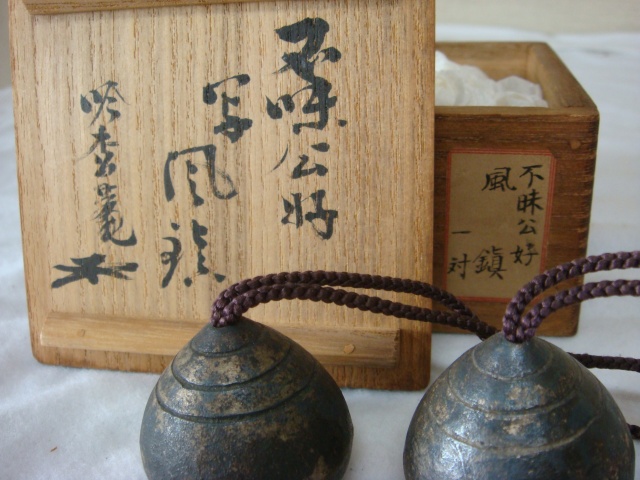 不昧公好
写
風鎮
吟松庵
不昧公好
風鎮
一対